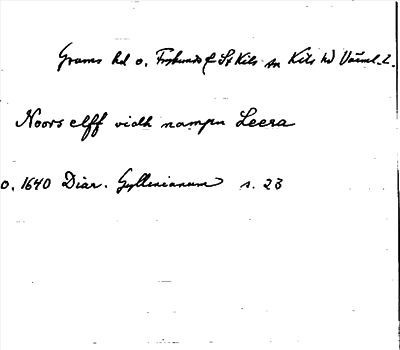 Grums hd o. Frykerud o St Kils sn Kils hd Värml. l.
Noors elff vidh nampn Leera
o. 1640 Diar. Gyllenianum s. 23